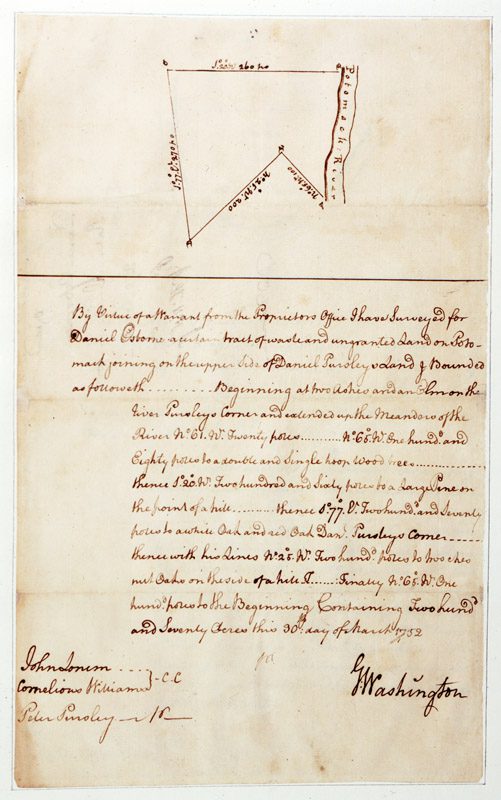 S° 20° W. 260 po
Potomack River
S° 77° E. 270 po
N° 25° W. 200
N° 65° W. 100
By Virtue of a Warrant from the Proprietors Office I have Surveyed for
Daniel Osborne a certain tract of waste and ungranted Land on Poto-
mack joining on the upper Side of Daniel Pursleys Land & Bounded
as followeth .......... Beginning at two Ashes and an Elm on the
River Pursleys Corner and extended up the Meanders of the
River N° 61. W. Twenty poles .......... N° 65. W. One hund. and
Eighty poles to a double and Single hoop wood trees ..........
thence S° 20. W. Two hundred and Sixty poles to a Large Pine on
the point of a hill .......... thence S° 77. E. Two hund. and Seventy
poles to a white Oak and red Oak Dan. Pursleys Corner ----
thence with his Lines N° 25. W. Two hund. poles to two ches
nut Oaks on the side of a hill ...... Finally N° 65. W. One
hund. poles to the Beginning Containing Two hund.
and Seventy Acres this 30th. day of March 1752
John Lonem ....
Cornelious Williams } - C.C
Peter Pursley
G Washington